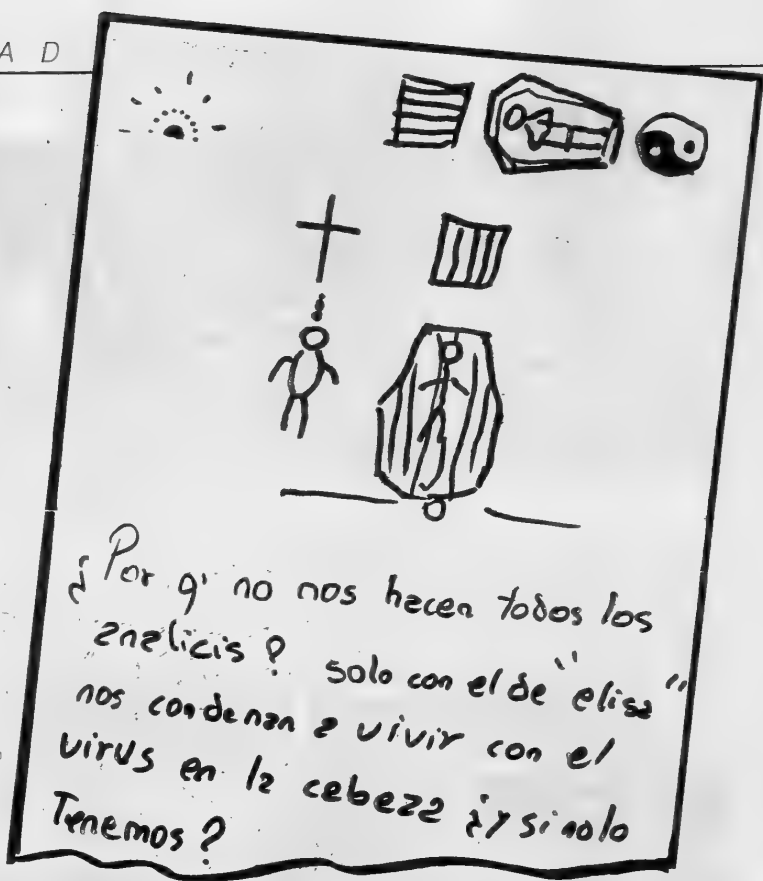 A D
¿Por q' no nos hacen todos los
analicis? solo con el de "elisa"
nos condenan a vivir con el
virus en la cabeza ¿y si nolo
Tenemos?